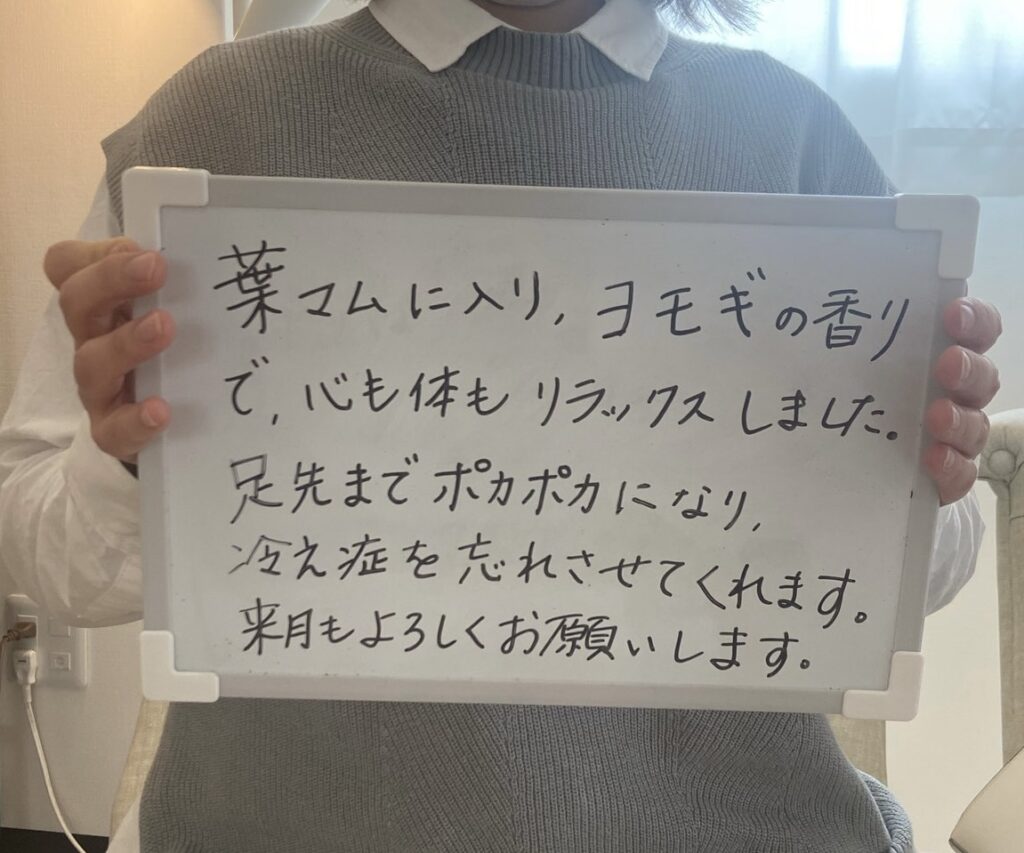 葉マムに入り, ヨモギの香り
で, 心も体もリラックスしました。
足先までポカポカになり,
冷え症を忘れさせてくれます。
来月もよろしくお願いします。